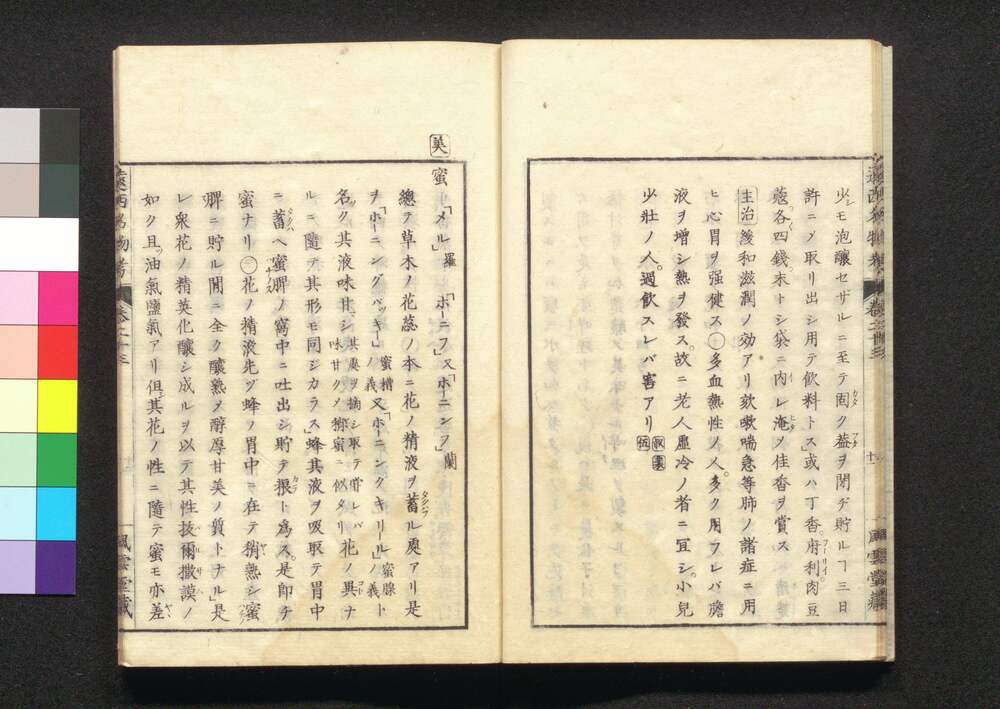 少シモ泡釀セザルニ至テ固ク葢ヲ閉ヂ貯ルヿ三日
許ニメ取リ出シ用テ飲料トス」或ハ丁香。府利肉豆
蔲各四錢。末トシ袋ニ内レ淹メ佳香ヲ賞スルモ
主治 緩和滋潤ノ効アリ欬嗽喘急等肺ノ諸症ニ用
ヒ心胃ヲ强健ス○多血熱性ノ人。多ク用フレバ膽
液ヲ增シ熱ヲ發ス。故ニ老人虛冷ノ者ニ宜シ。小兒
少壯ノ人。過飲スレバ害アリ
遠西名物考 卷之三十三
風雲堂藏
蜜 「メル」羅 「ホーニフ」又「ホーニンフ」蘭
總テ草木ノ花蕊ノ本ニ花ノ精液ヲ蓄ル處アリ是
ヲ「ホーニングバッキ」蜜槽ノ義又「ホーニングキリール」蜜腺ノ義ト
名ク其液味甘シ其處ヲ摘シ取テ嘗レバ味甘クメ擲蜜ニ似タリ花ノ異ナ
ルニ隨テ其形モ同ジカラス」蜂其液ヲ吸取テ胃中
ニ蓄ヘ蜜脾ノ窩中ニ吐出シ貯テ粮ト爲ス。是卽チ
蜜ナリ○花ノ精液先ヅ蜂ノ胃中ニ在テ稍熟シ蜜
脾ニ貯ル閒ニ全ク釀熟メ醇厚甘美ノ質トナル」是
レ衆花ノ精英化釀シ成ルヲ以テ其性拔爾撒謨ノ
如ク且ツ油氣鹽氣アリ但シ其花ノ性ニ隨テ蜜モ亦差